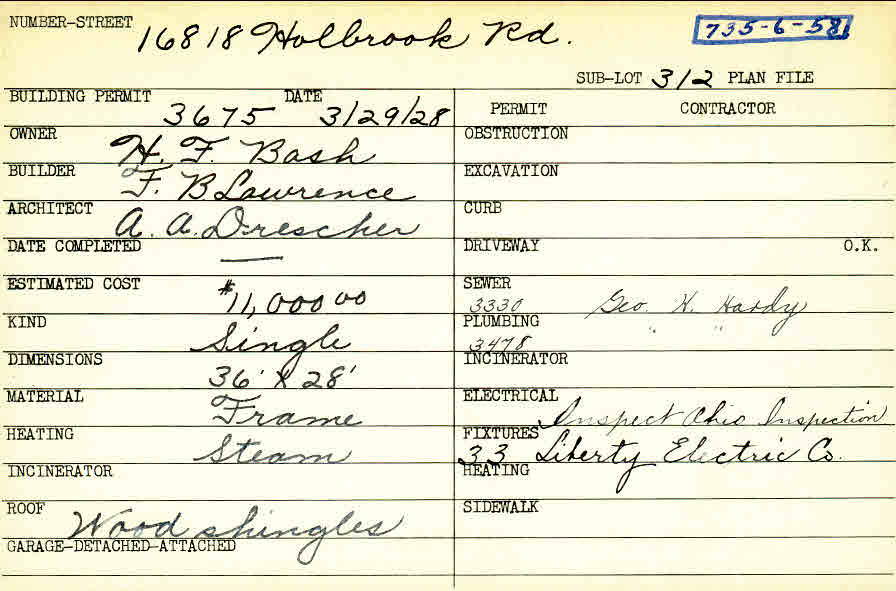 NUMBER-STREET 16818 Holbrook Rd. 735-6-58
SUB-LOT 312 PLAN FILE
BUILDING PERMIT 3675 DATE 3/29/28
PERMIT CONTRACTOR
OWNER H. F. Bash
OBSTRUCTION
BUILDER F. B Lawrence
EXCAVATION
ARCHITECT A. A. Drescher
CURB
DATE COMPLETED —
DRIVEWAY O.K.
ESTIMATED COST $11,000 00
SEWER 3330 Geo. H. Hardy
KIND Single
PLUMBING 3478 " "
DIMENSIONS 36' X 28'
INCINERATOR
MATERIAL Frame
ELECTRICAL Inspect Ohio Inspection
HEATING Steam
FIXTURES 33 Liberty Electric Co.
INCINERATOR
HEATING
ROOF Wood shingles
SIDEWALK
GARAGE-DETACHED-ATTACHED